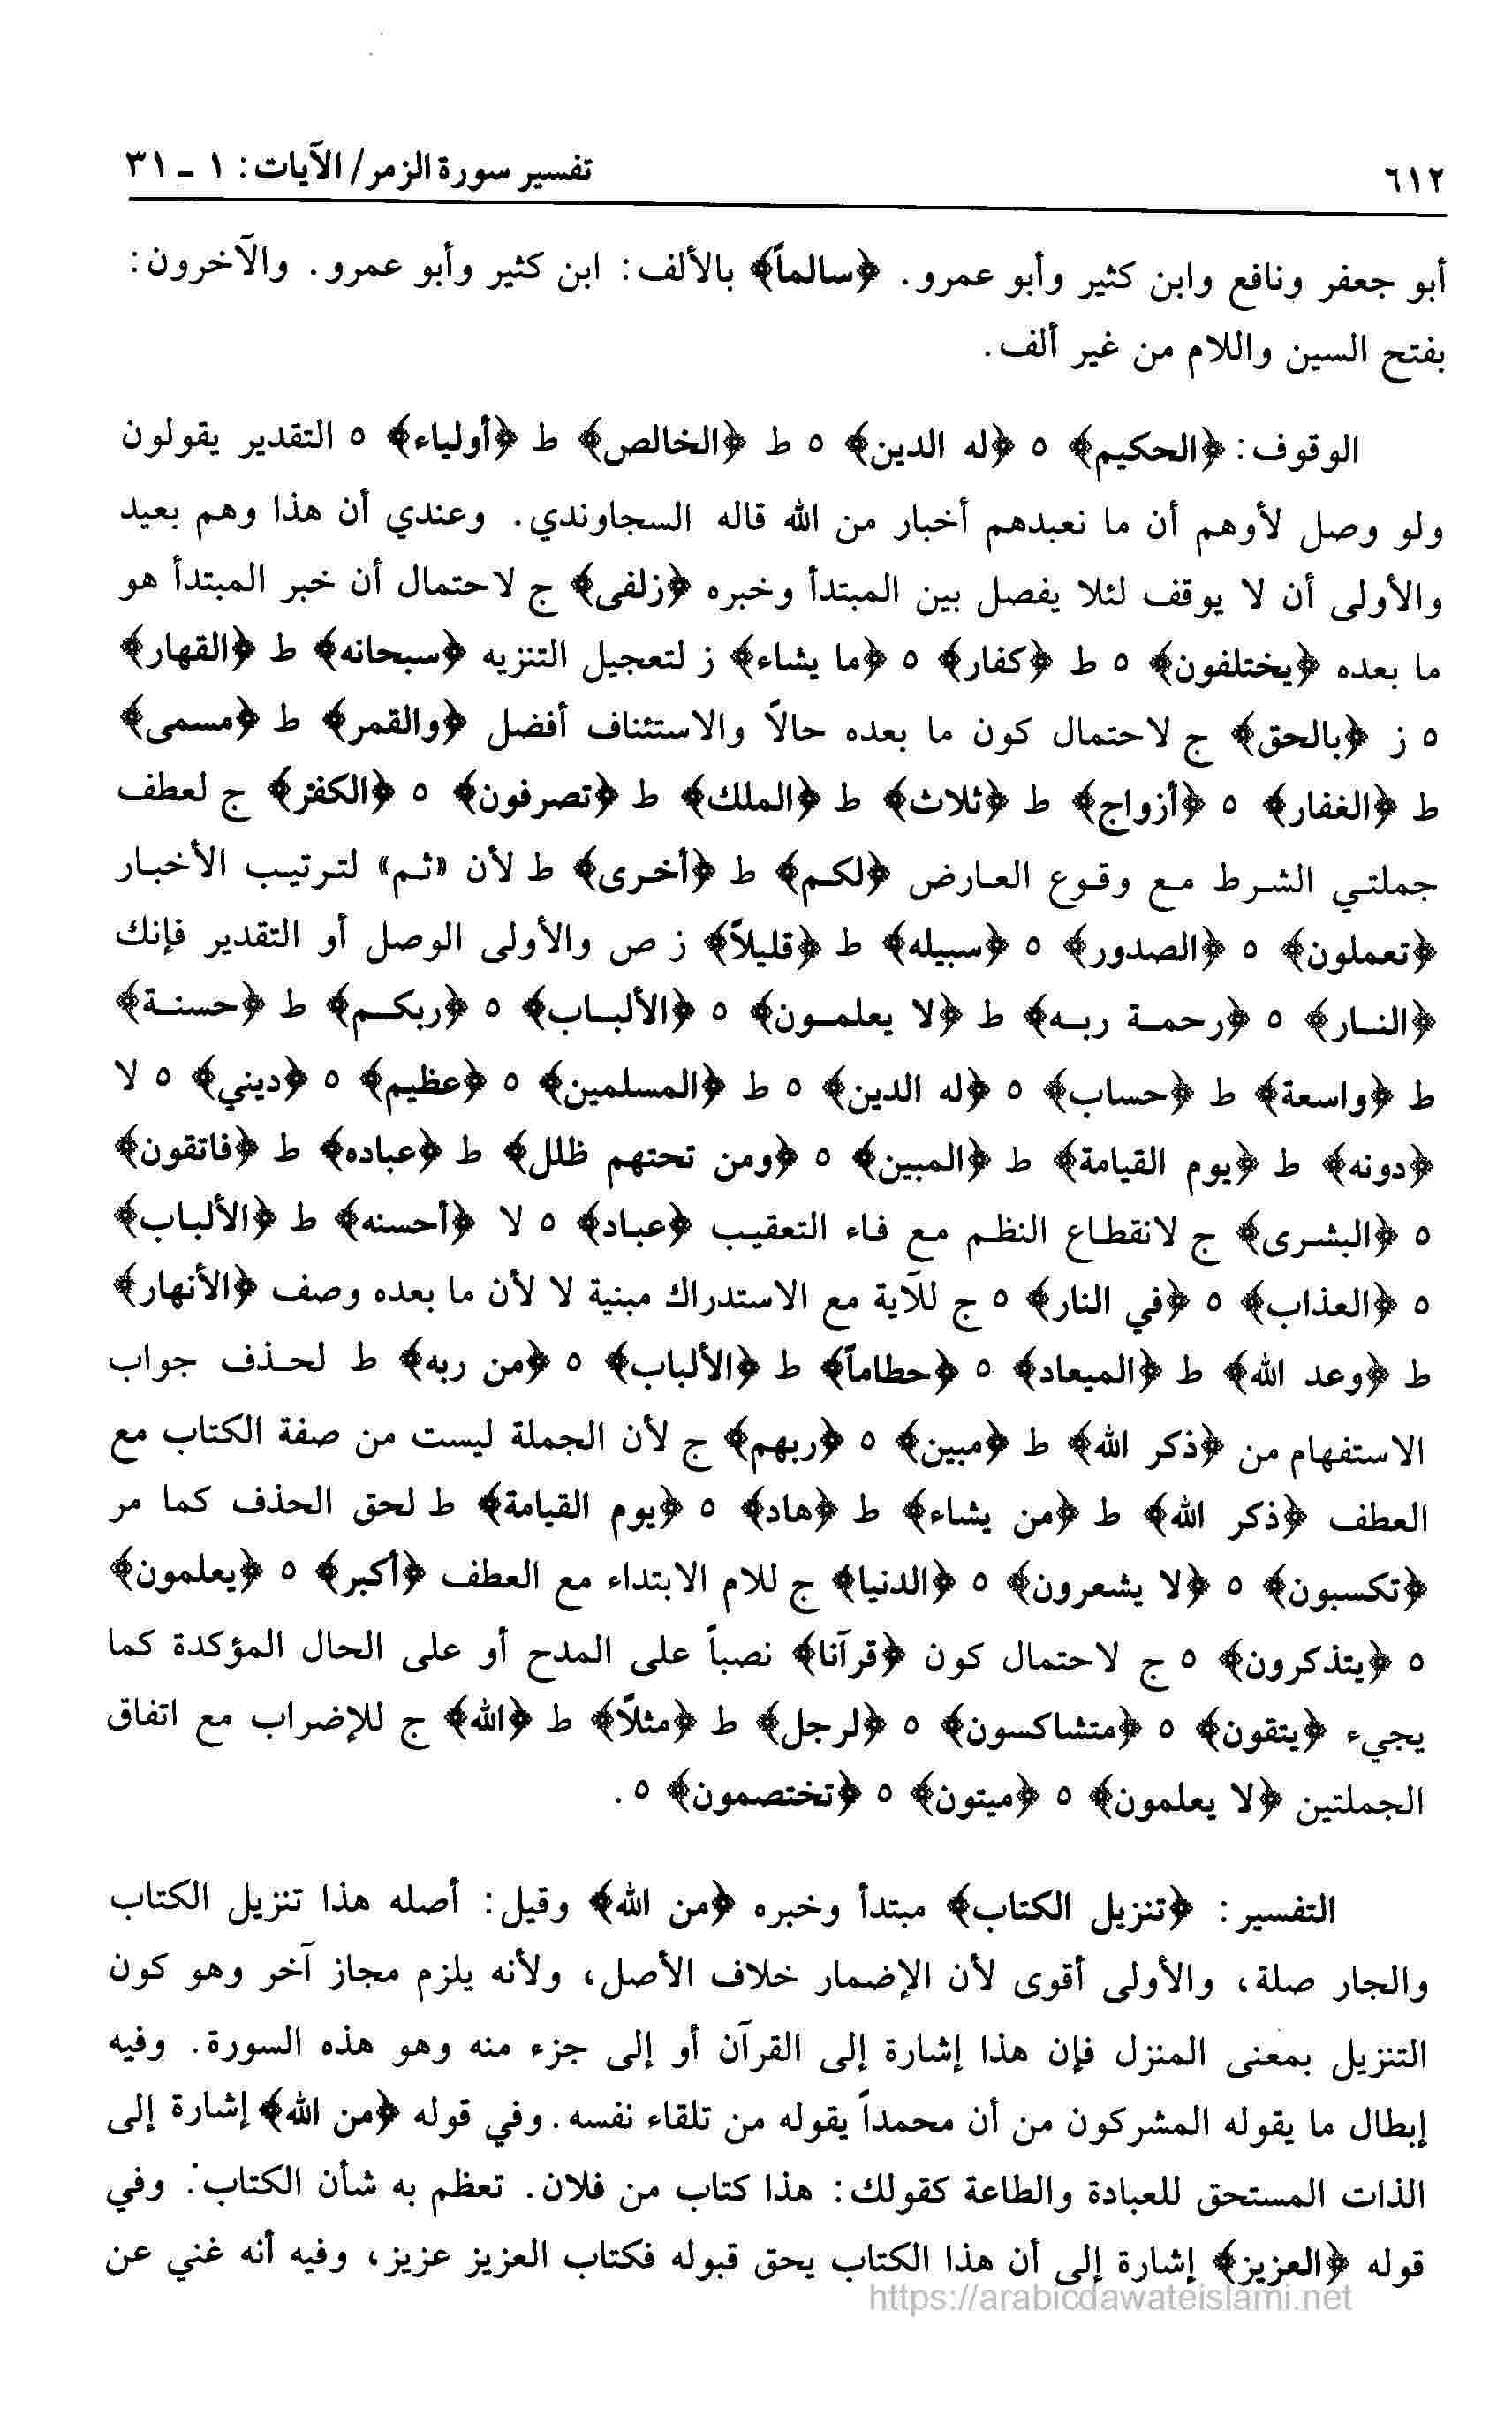 ٦١٢ تفسير سورة الزمر/ الآيات: ١ - ٣١
أبو جعفر ونافع وابن كثير وأبو عمرو. ﴿سالماً﴾ بالألف: ابن كثير وأبو عمرو. والآخرون:
بفتح السين واللام من غير ألف.
الوقوف: ﴿الحكيم﴾ ٥ ﴿له الدين﴾ ٥ ط ﴿الخالص﴾ ط ﴿أولياء﴾ ٥ التقدير يقولون
ولو وصل لأوهم أن ما نعبدهم أخبار من الله قاله السجاوندي. وعندي أن هذا وهم بعيد
والأولى أن لا يوقف لئلا يفصل بين المبتدأ وخبره ﴿زلفى﴾ ج لاحتمال أن خبر المبتدأ هو
ما بعده ﴿يختلفون﴾ ٥ ط ﴿كفار﴾ ٥ ﴿ما يشاء﴾ ز لتعجيل التنزيه ﴿سبحانه﴾ ط ﴿القهار﴾
٥ ز ﴿بالحق﴾ ج لاحتمال كون ما بعده حالاً والاستئناف أفضل ﴿والقمر﴾ ط ﴿مسمى﴾
ط ﴿الغفار﴾ ٥ ﴿أزواج﴾ ط ﴿ثلاث﴾ ط ﴿الملك﴾ ط ﴿تصرفون﴾ ٥ ﴿الكفر﴾ ج لعطف
جملتي الشرط مع وقوع العارض ﴿لكم﴾ ط ﴿أخرى﴾ ط لأن «ثم» لترتيب الأخبار
﴿تعملون﴾ ٥ ﴿الصدور﴾ ٥ ﴿سبيله﴾ ط ﴿قليلاً﴾ ز ص والأولى الوصل أو التقدير فإنك
﴿النار﴾ ٥ ﴿رحمة ربه﴾ ط ﴿لا يعلمون﴾ ٥ ﴿الألباب﴾ ٥ ﴿ربكم﴾ ط ﴿حسنة﴾
ط ﴿واسعة﴾ ط ﴿حساب﴾ ٥ ﴿له الدين﴾ ٥ ط ﴿المسلمين﴾ ٥ ﴿عظيم﴾ ٥ ﴿ديني﴾ ٥ لا
﴿دونه﴾ ط ﴿يوم القيامة﴾ ط ﴿المبين﴾ ٥ ﴿ومن تحتهم ظلل﴾ ط ﴿عباده﴾ ط ﴿فاتقون﴾
٥ ﴿البشرى﴾ ج لانقطاع النظم مع فاء التعقيب ﴿عباد﴾ ٥ لا ﴿أحسنه﴾ ط ﴿الألباب﴾
٥ ﴿العذاب﴾ ٥ ﴿في النار﴾ ٥ ج للآية مع الاستدراك مبنية لا لأن ما بعده وصف ﴿الأنهار﴾
ط ﴿وعد الله﴾ ط ﴿الميعاد﴾ ٥ ﴿حطاماً﴾ ط ﴿الألباب﴾ ٥ ﴿من ربه﴾ ط لحذف جواب
الاستفهام من ﴿ذكر الله﴾ ط ﴿مبين﴾ ٥ ﴿ربهم﴾ ج لأن الجملة ليست من صفة الكتاب مع
العطف ﴿ذكر الله﴾ ط ﴿من يشاء﴾ ط ﴿هاد﴾ ٥ ﴿يوم القيامة﴾ ط لحق الحذف كما مر
﴿تكسبون﴾ ٥ ﴿لا يشعرون﴾ ٥ ﴿الدنيا﴾ ج للام الابتداء مع العطف ﴿أكبر﴾ ٥ ﴿يعلمون﴾
٥ ﴿يتذكرون﴾ ٥ ج لاحتمال كون ﴿قرآنا﴾ نصباً على المدح أو على الحال المؤكدة كما
يجيء ﴿يتقون﴾ ٥ ﴿متشاكسون﴾ ٥ ﴿لرجل﴾ ط ﴿مثلاً﴾ ط ﴿الله﴾ ج للإضراب مع اتفاق
الجملتين ﴿لا يعلمون﴾ ٥ ﴿ميتون﴾ ٥ ﴿تختصمون﴾ ٥ .
التفسير: ﴿تنزيل الكتاب﴾ مبتدأ وخبره ﴿من الله﴾ وقيل: أصله هذا تنزيل الكتاب
والجار صلة، والأولى أقوى لأن الإضمار خلاف الأصل، ولأنه يلزم مجاز آخر وهو كون
التنزيل بمعنى المنزل فإن هذا إشارة إلى القرآن أو إلى جزء منه وهو هذه السورة. وفيه
إبطال ما يقوله المشركون من أن محمداً يقوله من تلقاء نفسه. وفي قوله ﴿من الله﴾ إشارة إلى
الذات المستحق للعبادة والطاعة كقولك: هذا كتاب من فلان. تعظم به شأن الكتاب. وفي
قوله ﴿العزيز﴾ إشارة إلى أن هذا الكتاب يحق قبوله فكتاب العزيز عزيز، وفيه أنه غني عن
https://arabicdawateislami.net